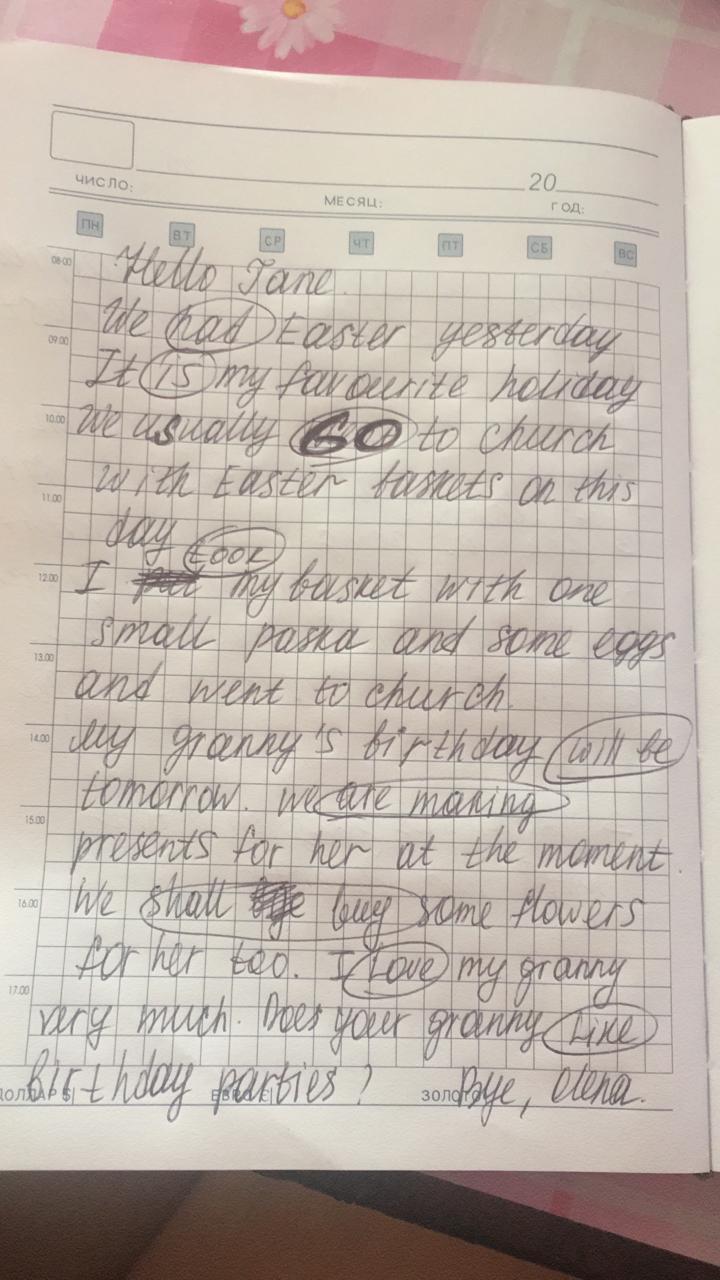 20
ЧИСЛО: МЕСЯЦ: ГОД:
ПН ВТ СР ЧТ ПТ СБ ВС
08:00 Hello Jane
We had Easter yesterday
09.00
It is my favourite holiday
10.00 We usually GO to church
with Easter baskets on this
11.00
day took
12.00 I my basket with one
small paska and some eggs
13.00
and went to church.
14.00 My granny's birthday will be
tomorrow. We are making
15.00
presents for her at the moment
16.00 We shall buy some flowers
for her too. I love my granny
17.00
very much. Does your granny like
birthday parties? Bye, Olena.
ДОЛЛАР $| ЕВРО €| ЗОЛОТО